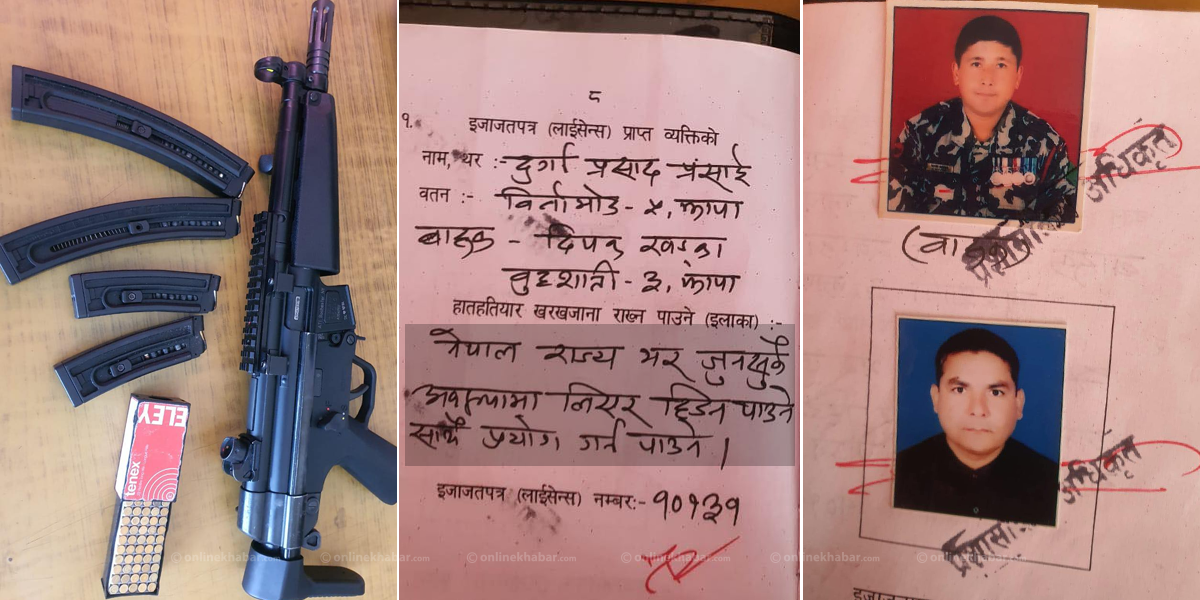 ELEY
tenex
८
१. इजाजतपत्र (लाईसेन्स) प्राप्त व्यक्तिको
नाम, थर :- दुर्गा प्रसाद प्रसाई
वतन :- विर्तामोड - ५, झापा
बाहक - दिपक खड्का
बुद्दशान्ती - ३, झापा
हातहतियार खरखजाना राख्न पाउने (इलाका) :-
नेपाल राज्य भर जुनसुकै
अवस्थामा लिएर हिडन पाउने
साथै प्रयोग गर्न पाउने ।
इजाजतपत्र (लाईसेन्स) नम्बर:- १०१३१
अधिकृत
अधिकृत
onlinekhabar.com
onlinekhabar.com
onlinekhabar.com
onlinekhabar.com
onlinekhabar.com
onlinekhabar.com